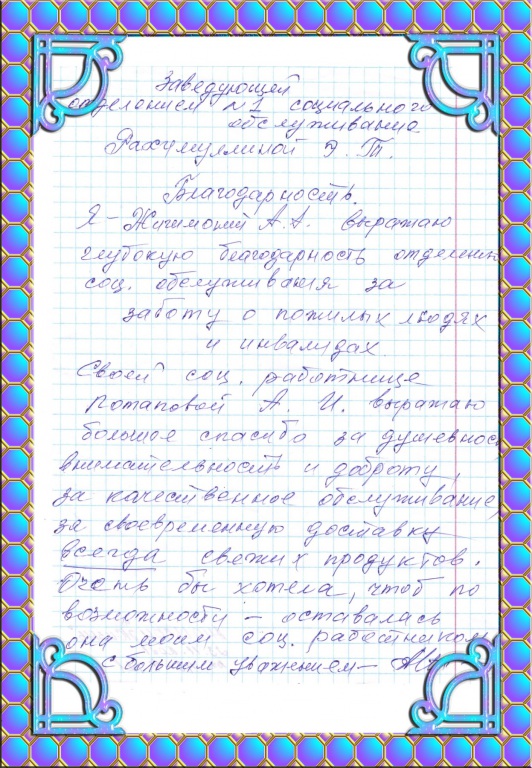 Заведующей
отделением №1 социального
обслуживанию.
Рахимуллиной Э. Т.
Благодарность.
Я - А.А. выражаю
глубокую благодарность отделению
соц. обслуживания за
заботу о пожилых людях
и инвалидах.
Своей соц. работнице
Потаповой А. И. выражаю
большое спасибо за душевность
внимательность и доброту,
за качественное обслуживание,
за своевременную доставку
всегда свежих продуктов.
Очень бы хотела, чтоб по
возможности - оставалась
она моим соц. работником
С большим уважением -